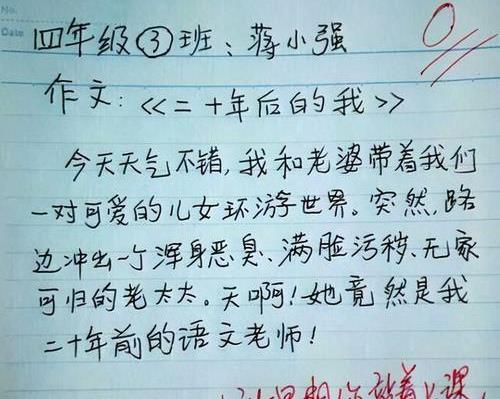 No.
Date
四年级③班：蒋小强
0
作文：<<二十年后的我>>
今天天气不错，我和老婆带着我们
一对可爱的儿女环游世界。突然，路
边冲出一个浑身恶臭、满脸污秽、无家
可归的老太太。天啊！她竟然是我
二十年前的语文老师！
你站着上课，